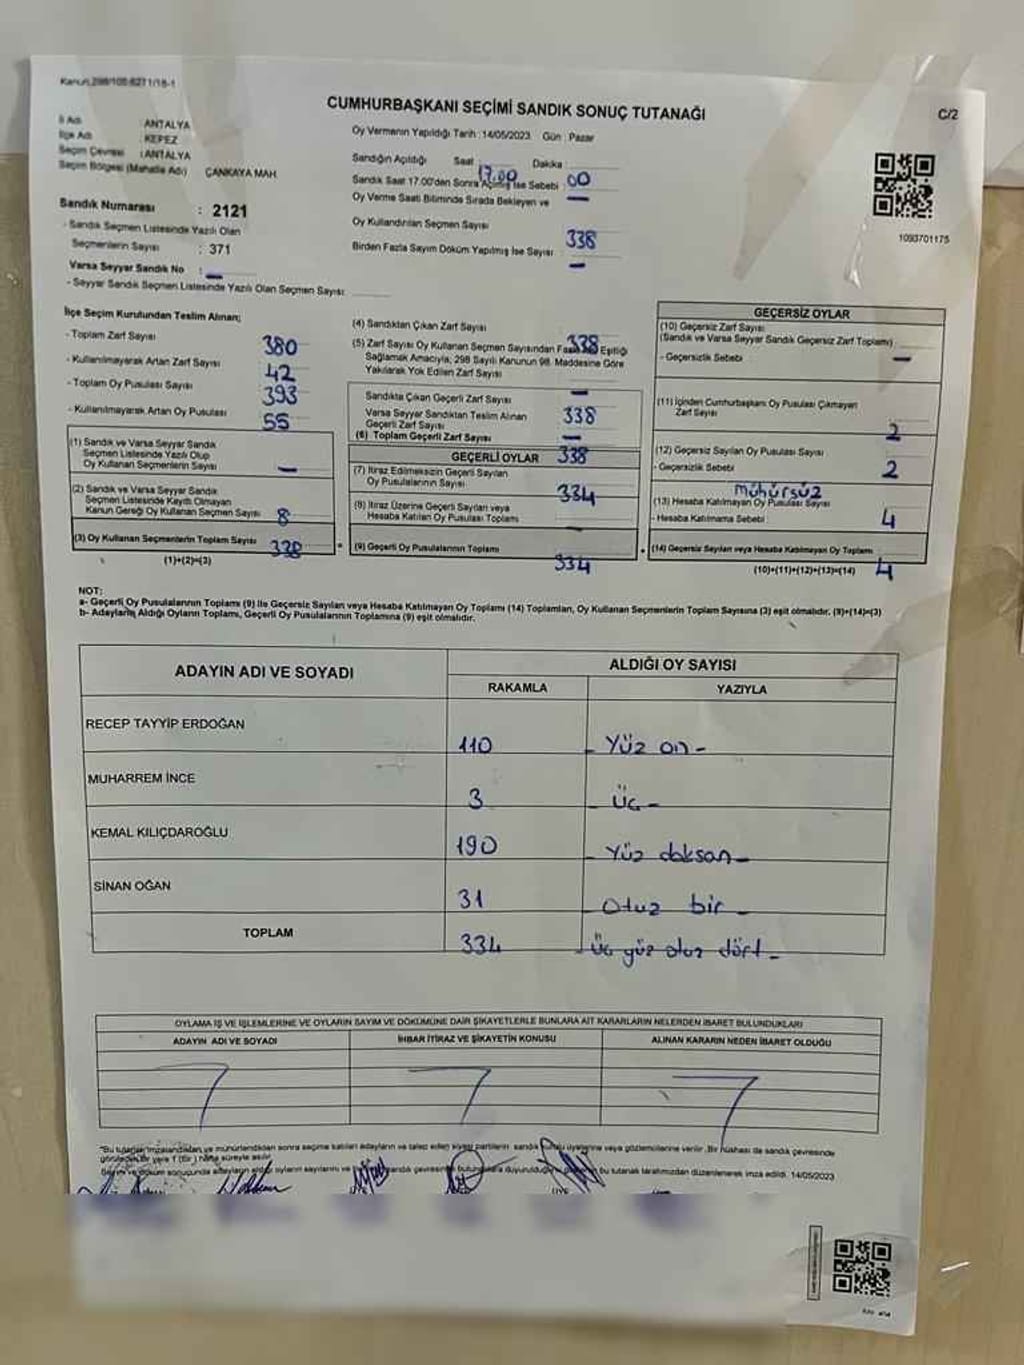 Kanun 298/105:6271/18-1
CUMHURBAŞKANI SEÇİMİ SANDIK SONUÇ TUTANAĞI
C/2
İl Adı : ANTALYA
İlçe Adı : KEPEZ
Seçim Çevresi : ANTALYA
Seçim Bölgesi (Mahalle Adı) ÇANKAYA MAH.
Oy Vermenin Yapıldığı Tarih : 14/05/2023 Gün : Pazar
Sandığın Açıldığı Saat : 17.00 Dakika : 00
Sandık Saat 17.00'den Sonra Açılmış İse Sebebi : —
Oy Verme Saati Bitiminde Sırada Bekleyen ve
Oy Kullandırılan Seçmen Sayısı 338
Birden Fazla Sayım Döküm Yapılmış İse Sayısı —
1093701175
Sandık Numarası : 2121
- Sandık Seçmen Listesinde Yazılı Olan
Seçmenlerin Sayısı : 371
Varsa Seyyar Sandık No : —
- Seyyar Sandık Seçmen Listesinde Yazılı Olan Seçmen Sayısı:
İlçe Seçim Kurulundan Teslim Alınan;
- Toplam Zarf Sayısı 380
- Kullanılmayarak Artan Zarf Sayısı 42
- Toplam Oy Pusulası Sayısı 393
- Kullanılmayarak Artan Oy Pusulası 55
(1) Sandık ve Varsa Seyyar Sandık
Seçmen Listesinde Yazılı Olup
Oy Kullanan Seçmenlerin Sayısı —
(2) Sandık ve Varsa Seyyar Sandık
Seçmen Listesinde Kayıtlı Olmayan
Kanun Gereği Oy Kullanan Seçmen Sayısı 8
(3) Oy Kullanan Seçmenlerin Toplam Sayısı 338
(1)+(2)=(3)
(4) Sandıktan Çıkan Zarf Sayısı 338
(5) Zarf Sayısı Oy Kullanan Seçmen Sayısından Fazla İse Eşitliği
Sağlamak Amacıyla; 298 Sayılı Kanunun 98. Maddesine Göre
Yakılarak Yok Edilen Zarf Sayısı —
Sandıkta Çıkan Geçerli Zarf Sayısı 338
Varsa Seyyar Sandıktan Teslim Alınan
Geçerli Zarf Sayısı —
(6) Toplam Geçerli Zarf Sayısı 338
GEÇERLİ OYLAR
(7) İtiraz Edilmeksizin Geçerli Sayılan
Oy Pusulalarının Sayısı 334
(8) İtiraz Üzerine Geçerli Sayılan veya
Hesaba Katılan Oy Pusulası Toplamı —
(9) Geçerli Oy Pusulalarının Toplamı 334
GEÇERSİZ OYLAR
(10) Geçersiz Zarf Sayısı
(Sandık ve Varsa Seyyar Sandık Geçersiz Zarf Toplamı) —
- Geçersizlik Sebebi
(11) İçinden Cumhurbaşkanı Oy Pusulası Çıkmayan
Zarf Sayısı 2
(12) Geçersiz Sayılan Oy Pusulası Sayısı 2
- Geçersizlik Sebebi mühürsüz
(13) Hesaba Katılmayan Oy Pusulası Sayısı 4
- Hesaba Katılmama Sebebi
(14) Geçersiz Sayılan veya Hesaba Katılmayan Oy Toplamı 4
(10)+(11)+(12)+(13)=(14)
NOT:
a- Geçerli Oy Pusulalarının Toplamı (9) ile Geçersiz Sayılan veya Hesaba Katılmayan Oy Toplamı (14) Toplamları, Oy Kullanan Seçmenlerin Toplam Sayısına (3) eşit olmalıdır. (9)+(14)=(3)
b- Adayların Aldığı Oyların Toplamı, Geçerli Oy Pusulalarının Toplamına (9) eşit olmalıdır.
ADAYIN ADI VE SOYADI
ALDIĞI OY SAYISI
RAKAMLA YAZIYLA
RECEP TAYYİP ERDOĞAN 110 - Yüz on -
MUHARREM İNCE 3 - üç -
KEMAL KILIÇDAROĞLU 190 - Yüz doksan -
SİNAN OĞAN 31 - otuz bir -
TOPLAM 334 - üç yüz otuz dört -
OYLAMA İŞ VE İŞLEMLERİNE VE OYLARIN SAYIM VE DÖKÜMÜNE DAİR ŞİKAYETLERLE BUNLARA AİT KARARLARIN NELERDEN İBARET BULUNDUKLARI
ADAYIN ADI VE SOYADI İHBAR İTİRAZ VE ŞİKAYETİN KONUSU ALINAN KARARIN NEDEN İBARET OLDUĞU